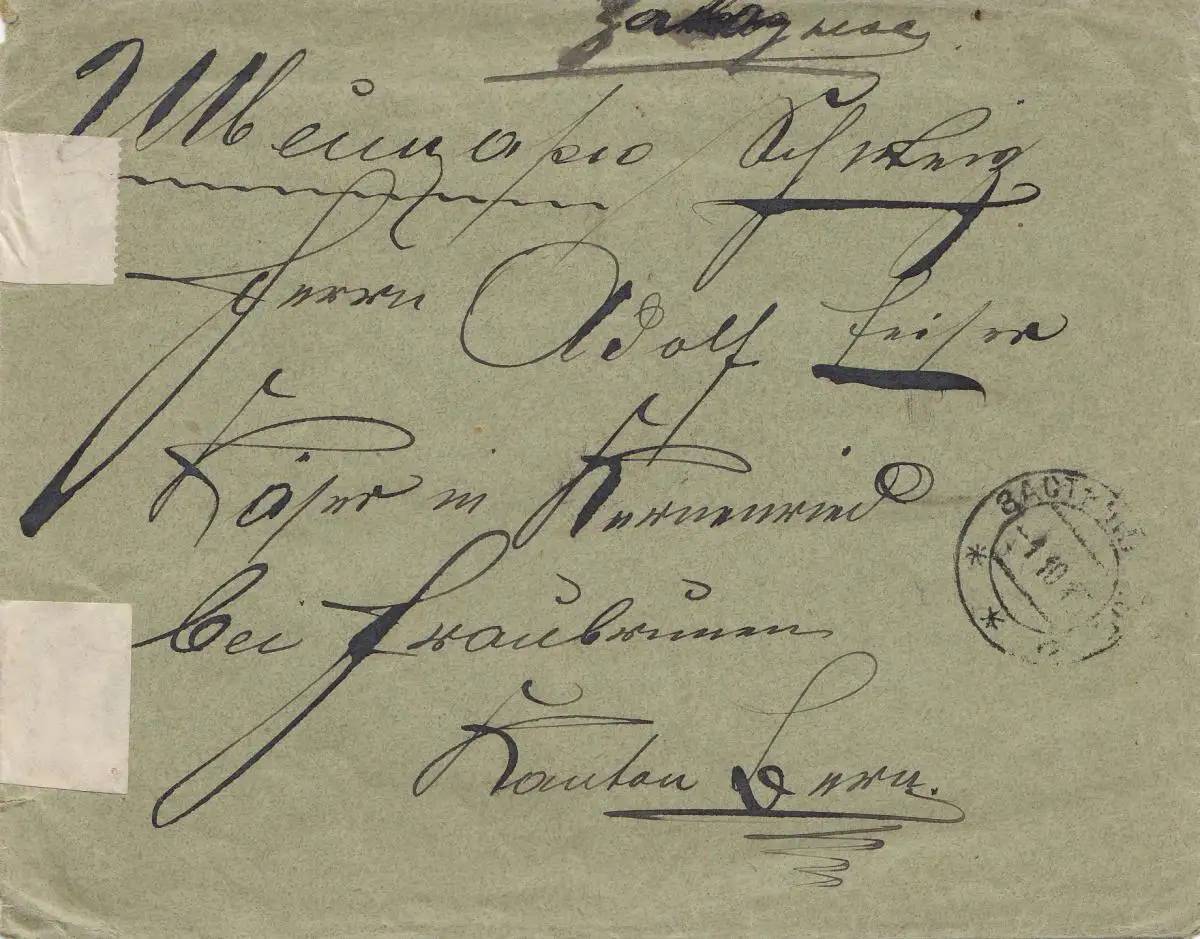 Заказное.
Швейцарію Schweiz
Herrn Adolf Leiser
Käser in Kernenried
bei Fraubrunnen
Kanton Bern.